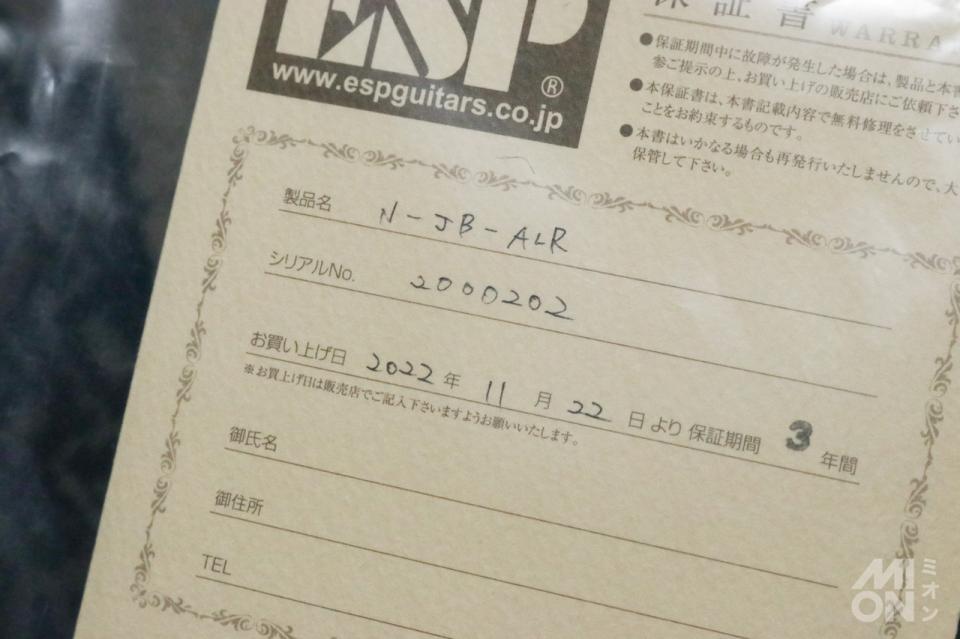 ESP®
www.espguitars.co.jp
保証書 WARRA
●保証期間中に故障が発生した場合は、製品と本書
参ご提示の上、お買い上げの販売店にご依頼下さ
●本保証書は、本書記載内容で無料修理をさせてい
ことをお約束するものです。
●本書はいかなる場合も再発行いたしませんので、大
保管して下さい。
製品名 N-JB-ALR
シリアルNo. 2000202
お買い上げ日 2022 年 11 月 22 日 より 保証期間 3 年間
※お買上げ日は販売店でご記入下さいますようお願いいたします。
御氏名
御住所
TEL
MION ミオン